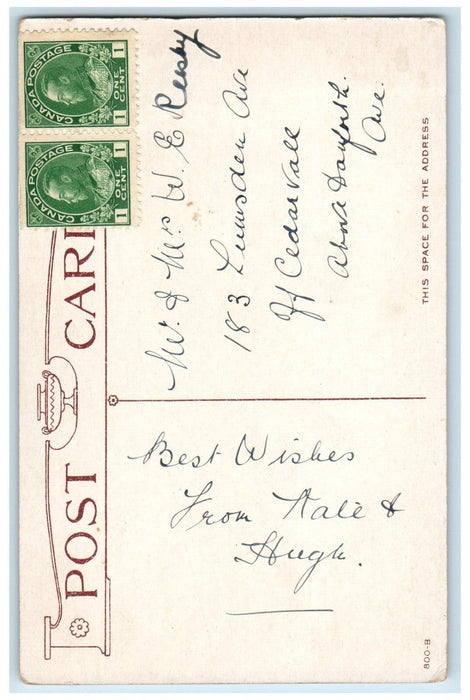 POST CARD
CANADA POSTAGE
1 ONE CENT 1
CANADA POSTAGE
1 ONE CENT 1
Best Wishes
From Kate &
Hugh.
THIS SPACE FOR THE ADDRESS
Mr. & Mrs W. E Reesby
183 Lumsden Ave
Off Cedarvale
Above Danforth.
Ave.
800-B